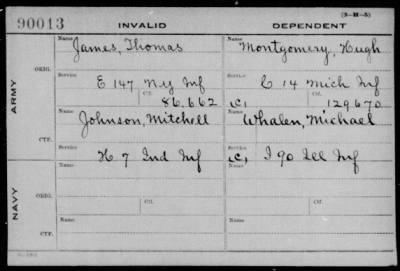 (3-H-5)
90013 INVALID DEPENDENT
ARMY
ORIG.
Name James, Thomas Name Montgomery, Hugh
Service E 147 N.Y. Inf Service C 14 Mich Inf
Ctf. 86,662 (C) Ctf. 129670
CTF.
Name Johnson, Mitchell Name Whalen, Michael
Service H 7 Ind Inf Service (C) I 90 Ill Inf
NAVY
ORIG.
Name Name
Service Ctf. Service Ctf.
CTF.
Name Name